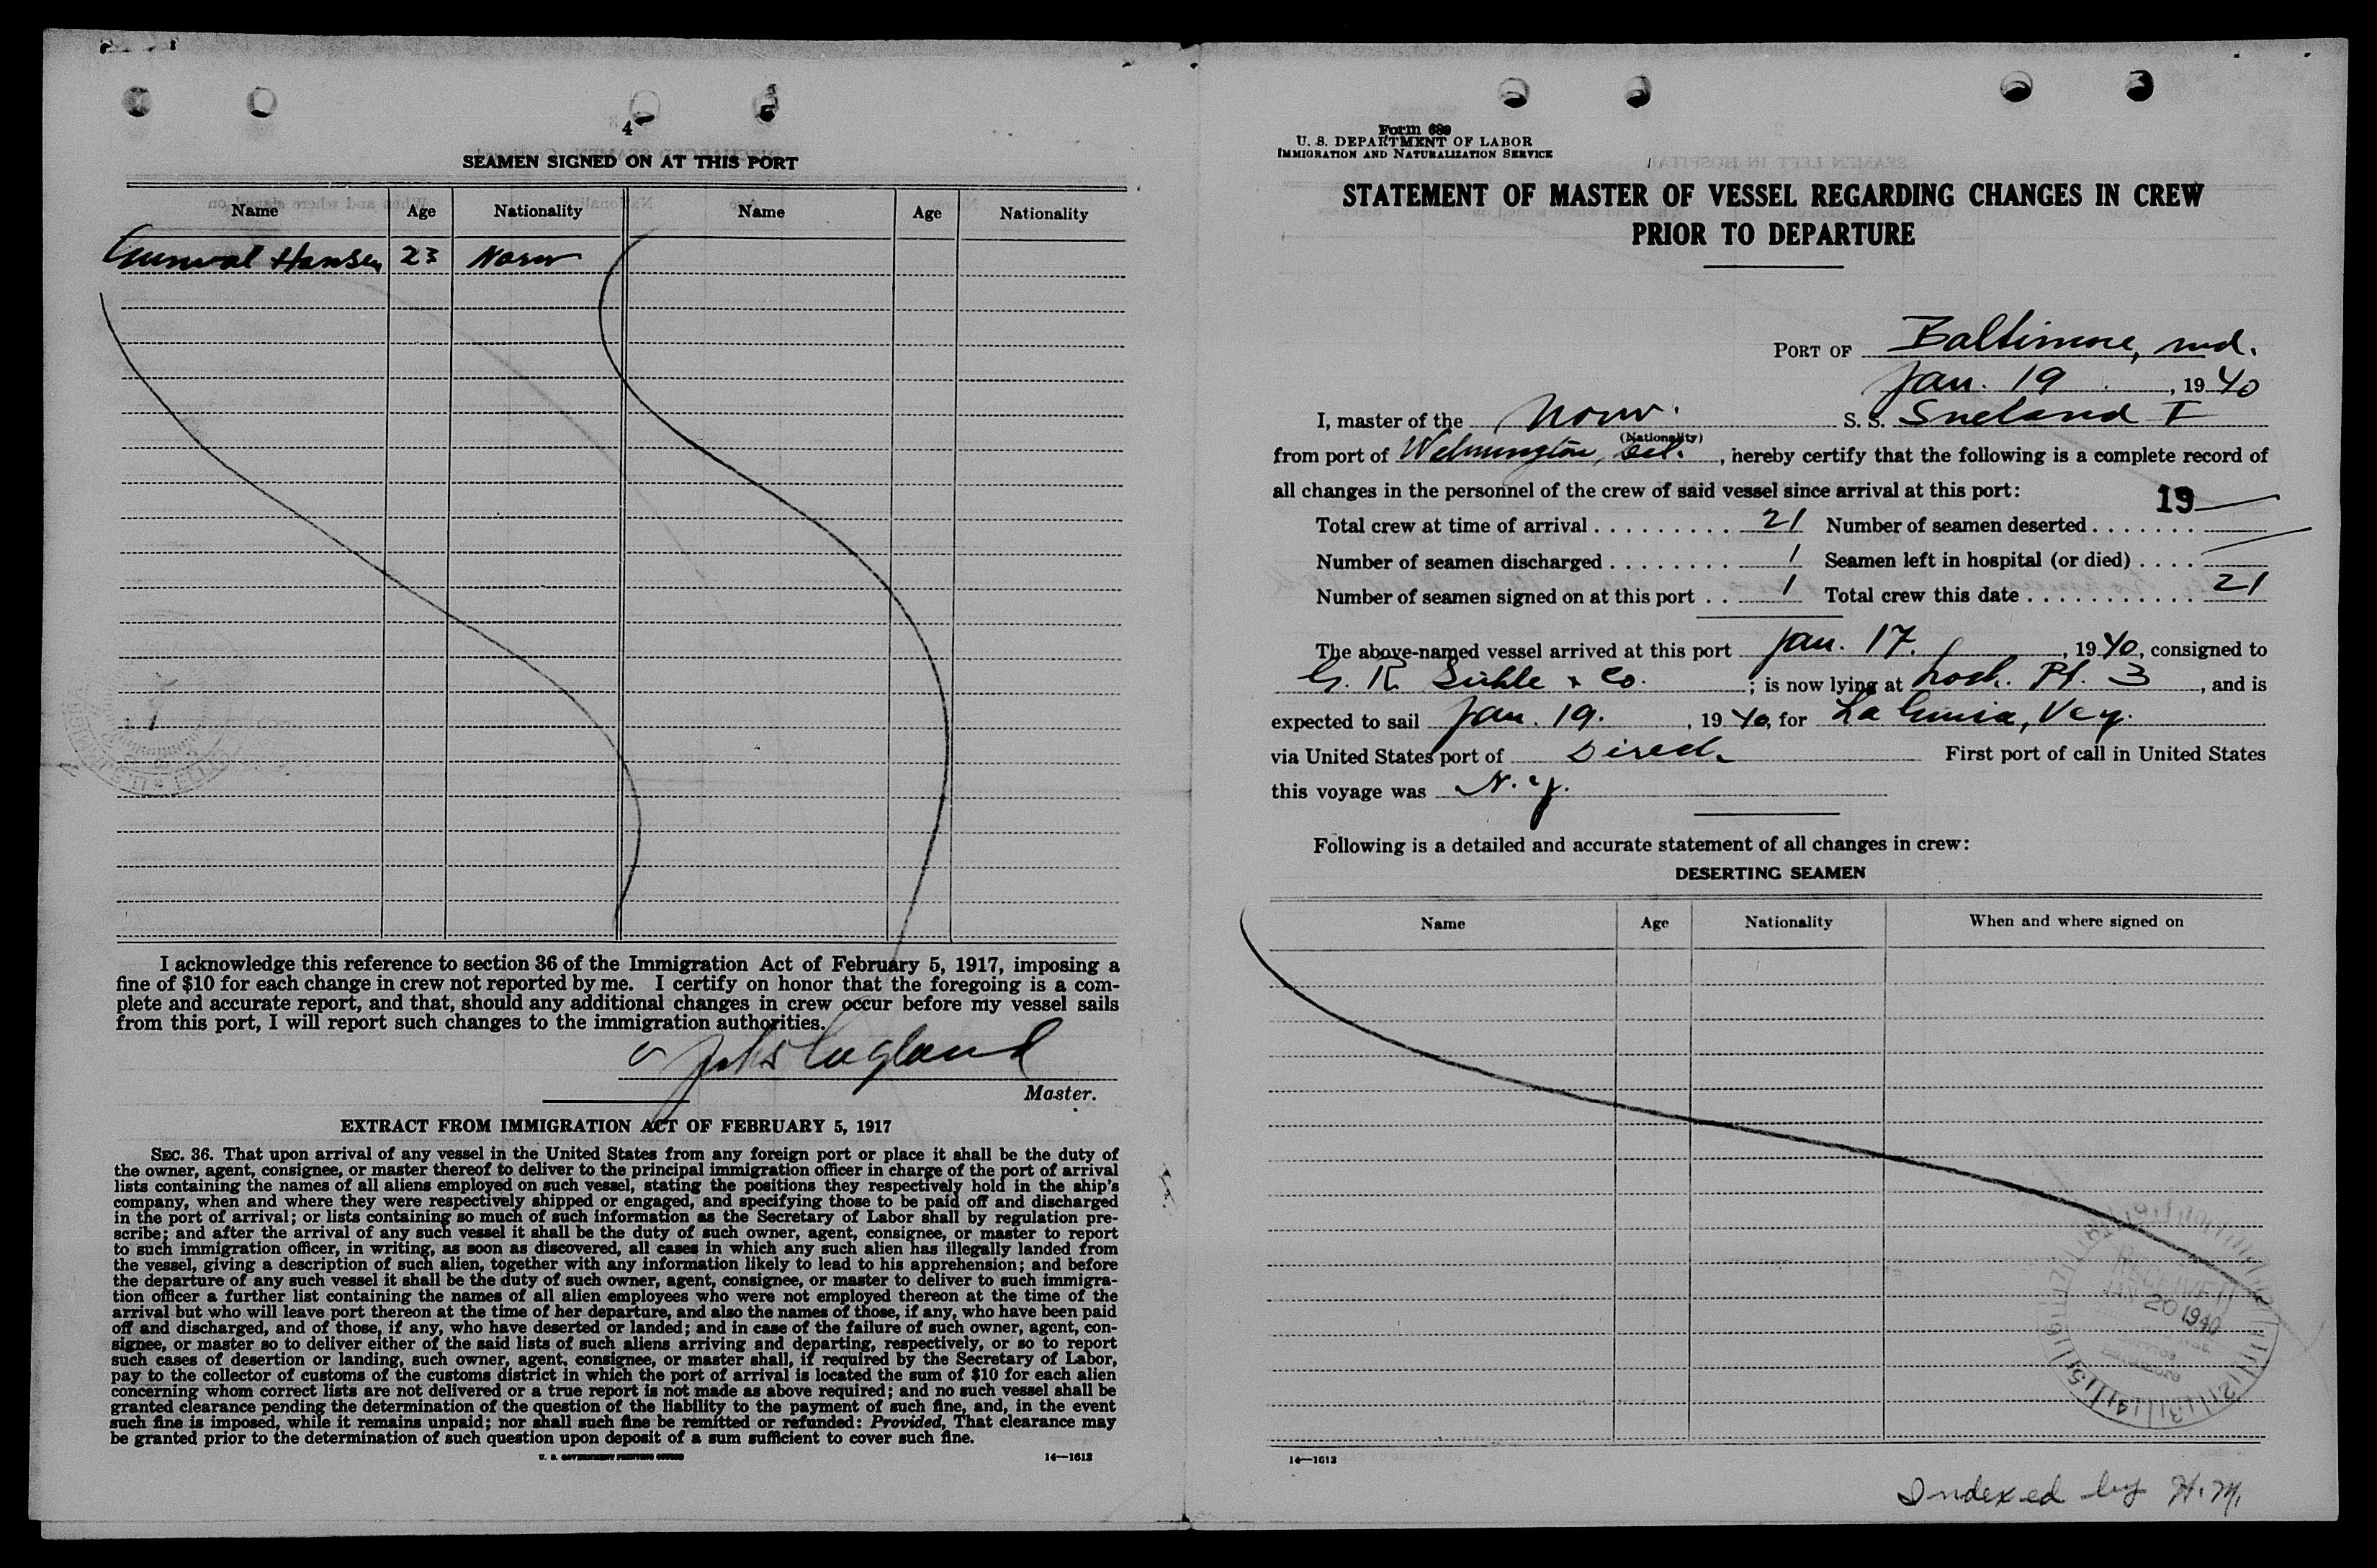 4
SEAMEN SIGNED ON AT THIS PORT
Name Age Nationality Name Age Nationality
Gunval Hansen 23 Norw
I acknowledge this reference to section 36 of the Immigration Act of February 5, 1917, imposing a
fine of $10 for each change in crew not reported by me. I certify on honor that the foregoing is a com-
plete and accurate report, and that, should any additional changes in crew occur before my vessel sails
from this port, I will report such changes to the immigration authorities.
Master.
EXTRACT FROM IMMIGRATION ACT OF FEBRUARY 5, 1917
SEC. 36. That upon arrival of any vessel in the United States from any foreign port or place it shall be the duty of
the owner, agent, consignee, or master thereof to deliver to the principal immigration officer in charge of the port of arrival
lists containing the names of all aliens employed on such vessel, stating the positions they respectively hold in the ship's
company, when and where they were respectively shipped or engaged, and specifying those to be paid off and discharged
in the port of arrival; or lists containing so much of such information as the Secretary of Labor shall by regulation pre-
scribe; and after the arrival of any such vessel it shall be the duty of such owner, agent, consignee, or master to report
to such immigration officer, in writing, as soon as discovered, all cases in which any such alien has illegally landed from
the vessel, giving a description of such alien, together with any information likely to lead to his apprehension; and before
the departure of any such vessel it shall be the duty of such owner, agent, consignee, or master to deliver to such immigra-
tion officer a further list containing the names of all alien employees who were not employed thereon at the time of the
arrival but who will leave port thereon at the time of her departure, and also the names of those, if any, who have been paid
off and discharged, and of those, if any, who have deserted or landed; and in case of the failure of such owner, agent, con-
signee, or master so to deliver either of the said lists of such aliens arriving and departing, respectively, or so to report
such cases of desertion or landing, such owner, agent, consignee, or master shall, if required by the Secretary of Labor,
pay to the collector of customs of the customs district in which the port of arrival is located the sum of $10 for each alien
concerning whom correct lists are not delivered or a true report is not made as above required; and no such vessel shall be
granted clearance pending the determination of the question of the liability to the payment of such fine, and, in the event
such fine is imposed, while it remains unpaid; nor shall such fine be remitted or refunded: Provided, That clearance may
be granted prior to the determination of such question upon deposit of a sum sufficient to cover such fine.
U. S. GOVERNMENT PRINTING OFFICE 14—1613
Form 689
U. S. DEPARTMENT OF LABOR
IMMIGRATION AND NATURALIZATION SERVICE
STATEMENT OF MASTER OF VESSEL REGARDING CHANGES IN CREW
PRIOR TO DEPARTURE
PORT OF Baltimore, Md.
Jan. 19, 1940
I, master of the Norw. S. S. Sneland I
(Nationality)
from port of Wilmington, Del., hereby certify that the following is a complete record of
all changes in the personnel of the crew of said vessel since arrival at this port:
19
Total crew at time of arrival 21 Number of seamen deserted —
Number of seamen discharged 1 Seamen left in hospital (or died) —
Number of seamen signed on at this port 1 Total crew this date 21
The above-named vessel arrived at this port Jan. 17, 1940, consigned to
G. R. & Co.; is now lying at Pt. 3, and is
expected to sail Jan. 19, 1940, for
via United States port of Direct First port of call in United States
this voyage was N. Y.
Following is a detailed and accurate statement of all changes in crew:
DESERTING SEAMEN
Name Age Nationality When and where signed on
RECEIVED
JAN 20 1940
14—1613
Indexed by H. M.